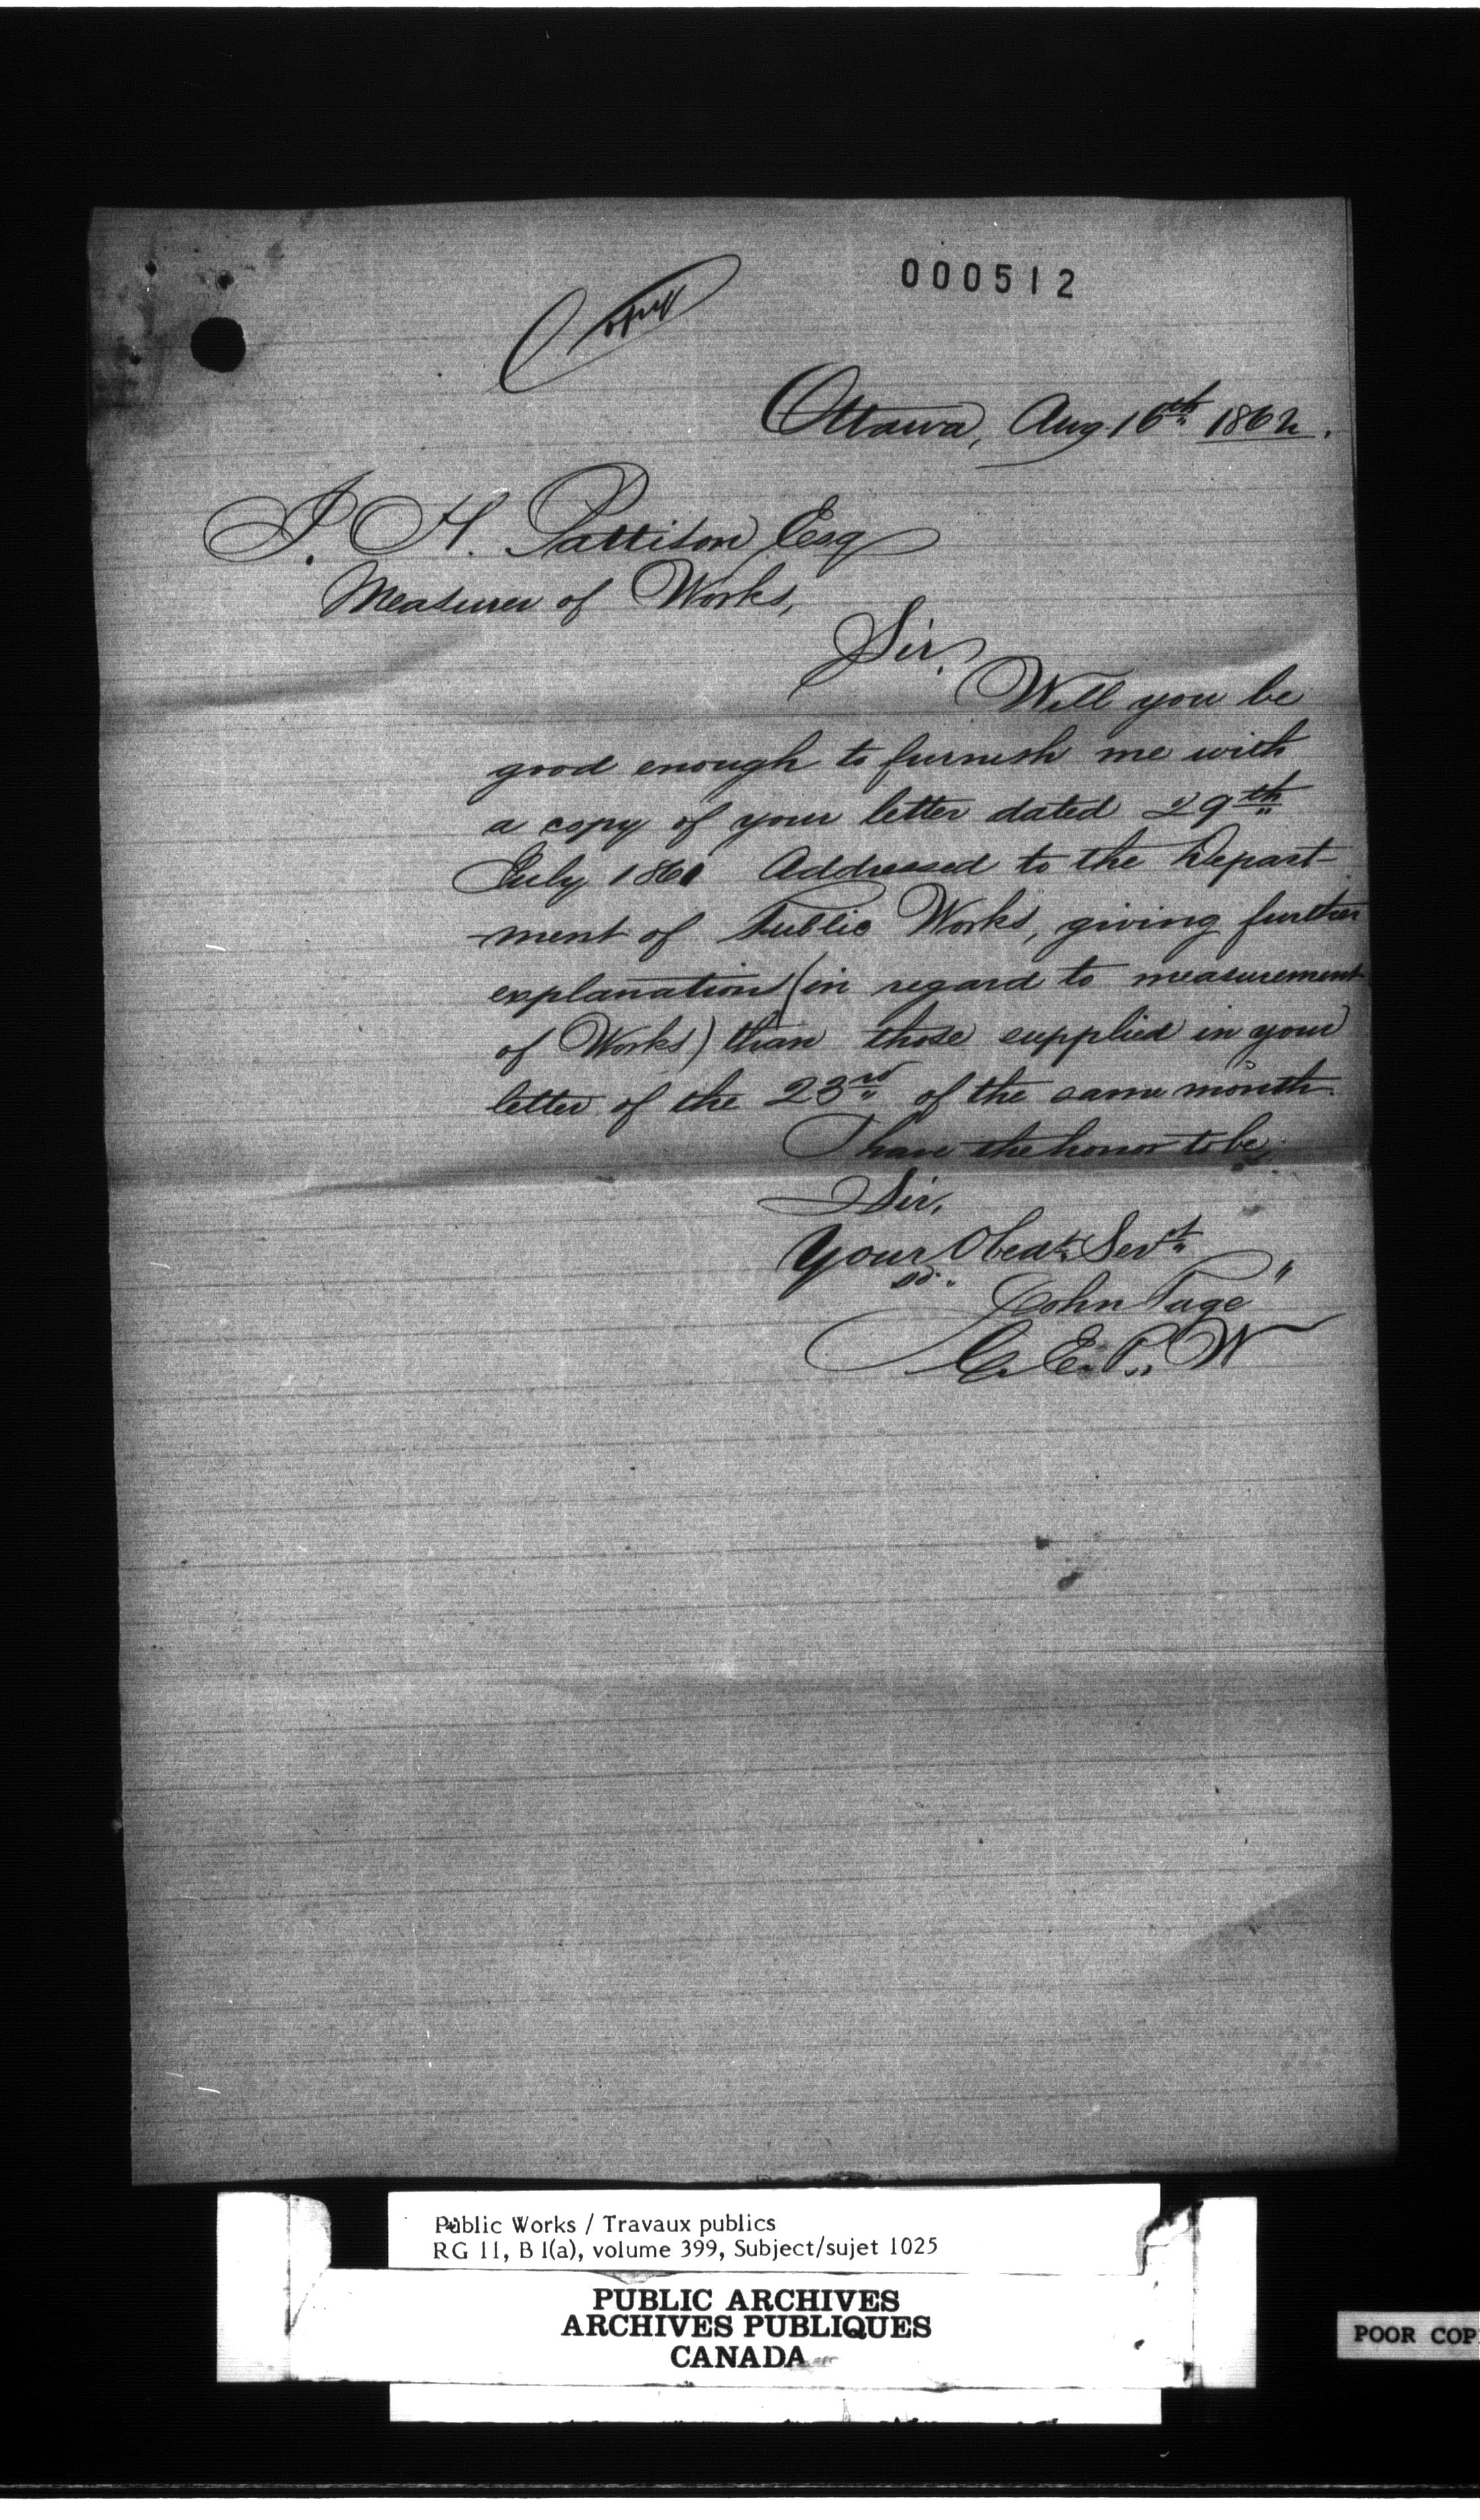 000512
Copy
Ottawa, Aug 16th 1862.
J. H. Pattison Esq
Measurer of Works,
Sir,
Will you be
good enough to furnish me with
a copy of your letter dated 29th
July 1861 Addressed to the Depart-
-ment of Public Works, giving further
explanations (in regard to measurement
of Works) than those supplied in your
letter of the 23rd of the same month.
I have the honor to be,
Sir,
Your Obedt. Servt.
sd. John Page"
C. E. P. W
Public Works / Travaux publics
RG 11, B 1(a), volume 399, Subject/sujet 1025
PUBLIC ARCHIVES
ARCHIVES PUBLIQUES
CANADA
POOR COP